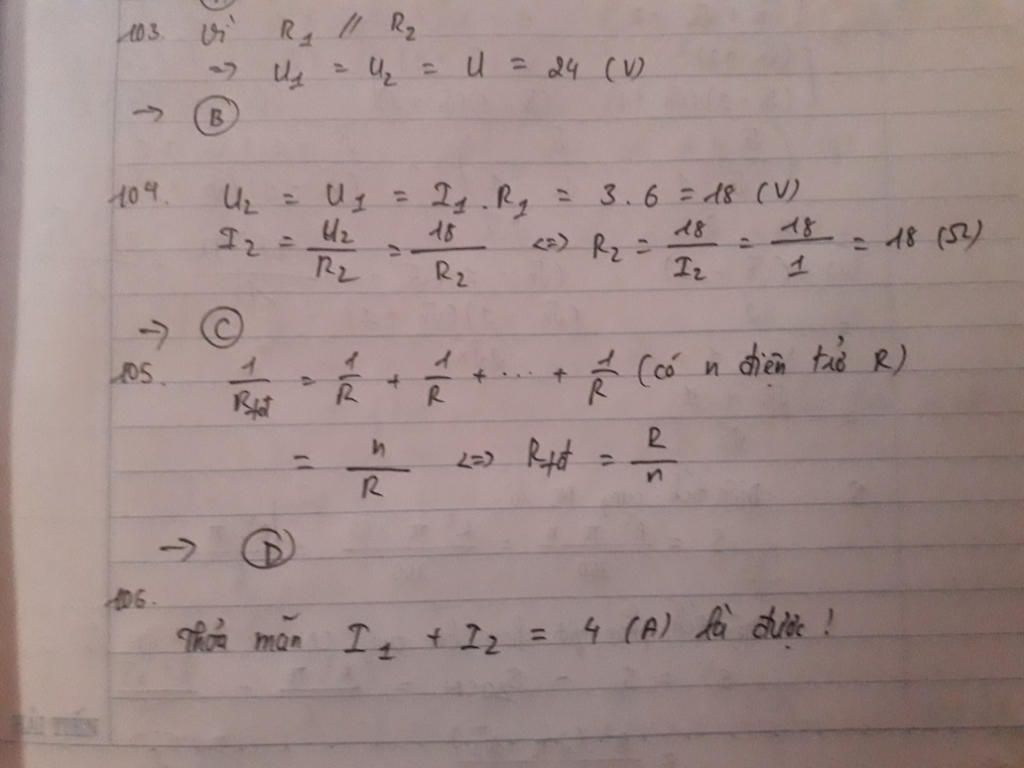 103. Vì R₁ // R₂
=> U₁ = U₂ = U = 24 (V)
→ B
104. U₂ = U₁ = I₁ . R₁ = 3 . 6 = 18 (V)
I₂ = U₂/R₂ = 18/R₂ <=> R₂ = 18/I₂ = 18/1 = 18 (Ω)
→ C
105. 1/Rtđ = 1/R + 1/R + ... + 1/R (có n điện trở R)
= n/R <=> Rtđ = R/n
→ D
106.
Thoả mãn I₁ + I₂ = 4 (A) là được !
HẢI TIẾN